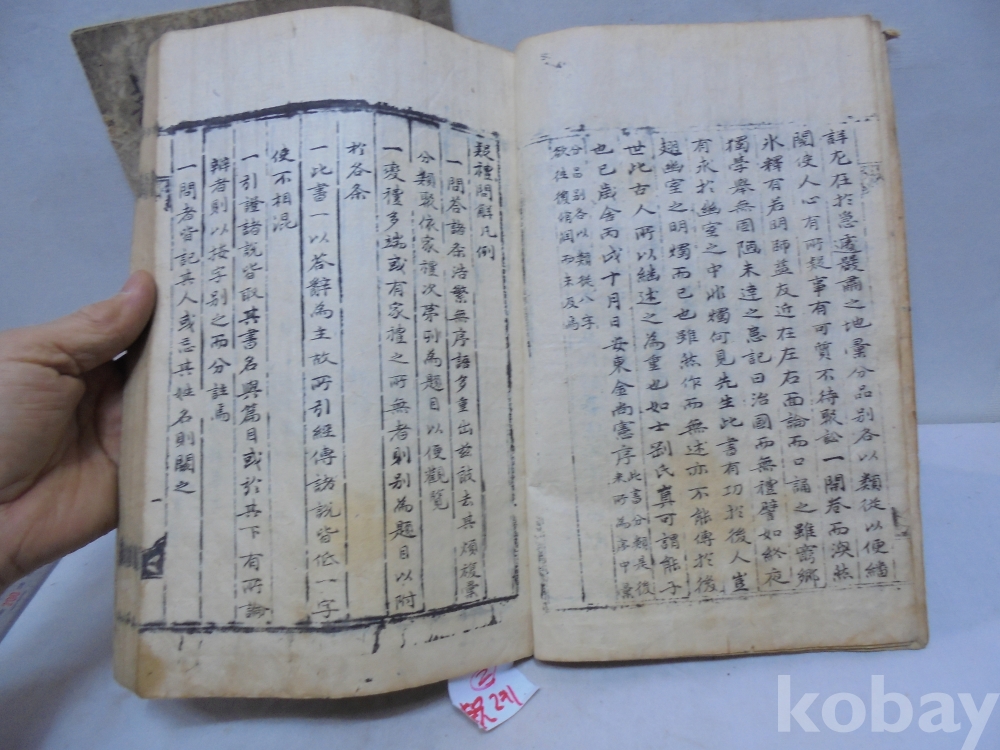 詳尤在於急遽設肅之地彙分品別各以類從以便繙
閱使人心有所疑事有可質不待聚訟一開卷而渙然
氷釋有若明師益友近在左右面論而口誦之雖窮鄉
獨學擧無固陋未達之忌記曰治國而無禮譬如終夜
有求於幽室之中非燭何見先生此書有功於後人豈
翅幽室之明燭而已也雖然作而無述亦不能傳於後
世此古人所以繼述之為重也如士剛氏眞可謂能子
也已歲舍丙戌十月日安東金尙憲序
此書分類是後
來所爲序中彙
分品別各以類從八字
欲往復
而未及爲
疑禮問解凡例
一問答語条浩繁無序語多重出玆敢去其煩複彙
分類聚依家禮次第列為題目以便觀覧
一變禮多端或有家禮之所無者則別為題目以附
於各条
一此書一以答辭為主故所引經傳諸說皆低一字
使不相混
一引證諸說皆取其書名與篇目或於其下有所論
辯者則以按字別之而分註焉
一問者皆記其人或忘其姓名則闕之
一
kobay